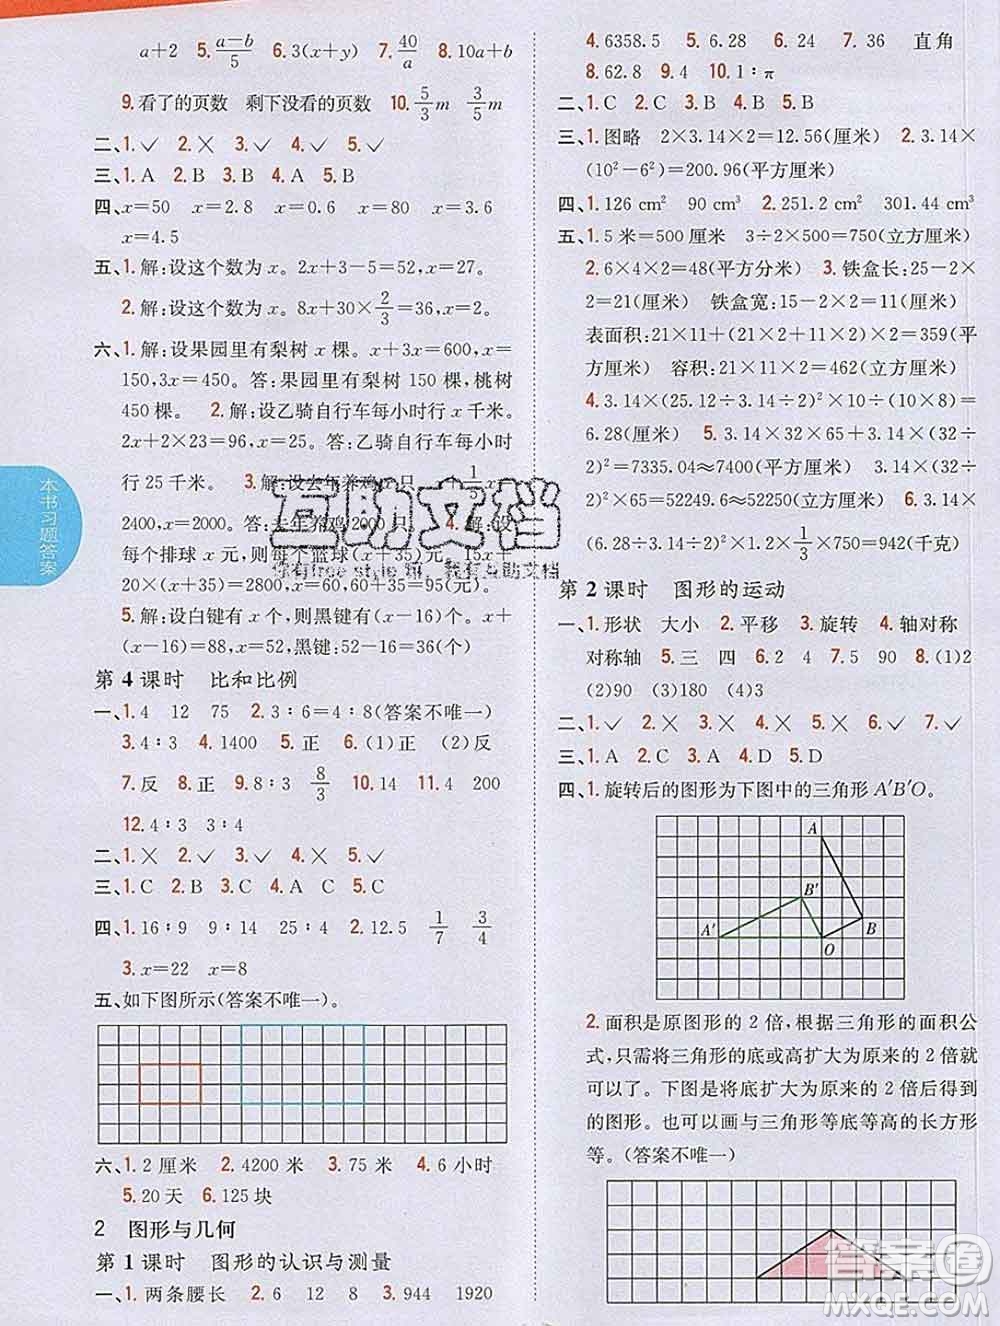 a+2 5. (a−b)/5 6. 3(x+y) 7. 40/a 8. 10a+b
9. 看了的页数 剩下没看的页数 10. 5/3 m 3/5 m
二、1. ✓ 2. × 3. ✓ 4. ✓ 5. ✓
三、1. A 2. B 3. C 4. A 5. B
四、x=50 x=2.8 x=0.6 x=80 x=3.6
x=4.5
五、1. 解:设这个数为 x。2x+3−5=52,x=27。
2. 解:设这个数为 x。8x+30×2/3=36,x=2。
六、1. 解:设果园里有梨树 x 棵。x+3x=600,x=
150,3x=450。答:果园里有梨树 150 棵,桃树
450 棵。 2. 解:设乙骑自行车每小时行 x 千米。
2x+2×23=96,x=25。答:乙骑自行车每小时
行 25 千米。 3. 解:设去年养鸡 x 只。x+1/5x=
2400,x=2000。答:去年养鸡2000 只。 4. 解:设
每个排球 x 元,则每个篮球(x+35)元。40x+
20×(x+35)=2800,x=35,x+35=95(元)
5. 解:设白键有 x 个,则黑键有(x−16)个。x+
(x−16)=88,x=52,黑键:52−16=36(个)
第 4 课时 比和比例
一、1. 4 12 75 2. 3∶6=4∶8(答案不唯一)
3. 4∶7 4. 1400 5. 正 6. (1)正 (2)反
7. 反 8. 正 9. 8∶3 8/3 10. 4 11. 4 200
12. 4∶3 3∶4
二、1. × 2. × 3. ✓ 4. × 5. ✓
三、1. C 2. B 3. C 4. C 5. C
四、1. 16∶9 9∶14 25∶4 2. 12.5 1/7 3/4
3. x=22 x=8
五、如下图所示(答案不唯一)。
六、1. 2 厘米 2. 4200 米 3. 75 米 4. 6 小时
5. 20 天 6. 125 块
2 图形与几何
第 1 课时 图形的认识与测量
一、1. 两条腰长 2. 6 12 8 3. 944 1920
4. 6358.5 5. 6.28 6. 24 7. 36 直角
8. 62.8 9. 4 10. 1∶π
二、1. C 2. C 3. A 4. B 5. C
三、1. 图略 2×3.14×2=12.56(厘米) 2. 3.14×
(10²−6²)=200.96(平方厘米)
四、1. 126 cm² 90 cm³ 2. 251.2 cm² 301.44 cm³
五、1. 5 米=500 厘米 3÷2×500=750(立方厘米)
2. 6×4×2=48(平方分米) 3. 铁盒长:25−2×
2=21(厘米) 铁盒宽:15−2×2=11(厘米)
表面积:21×11+(21×2+11×2)×2=359(平
方厘米) 容积:21×11×2=462(立方厘米)
4. 3.14×(25.12÷3.14÷2)²×10÷(8×5)=
6.28(厘米) 5. 3.14×(94.2÷3.14÷2)²+94.2×
70=7335.04≈7400(平方厘米) 3.14×(94.2÷3.14÷
2)²×65=52249.6(立方厘米) 6. 3.14×
(6.28÷3.14÷2)²×1.2×1/3×750=942(千克)
第 2 课时 图形的运动
一、1. 形状 大小 2. 平移 3. 旋转 4. 轴对称
对称轴 5. 三 四 6. 2 4 7. 5 90 8. (1)2
(2)90 (3)180 (4)3
二、1. ✓ 2. ✓ 3. ✓ 4. × 5. ✓ 6. ✓ 7. ✓
三、1. A 2. C 3. A 4. D 5. D
四、1. 旋转后的图形为下图中的三角形 A′B′O。
A
B′
A′
B
O
2. 面积是原图形的 2 倍,根据三角形的面积公
式,只需将三角形的底或高扩大为原来的 2 倍就
可以了。下图是将底扩大为原来的 2 倍后得到
的图形。也可以画与三角形等底等高的长方形
等。(答案不唯一)
本书习题答案
互助文档
答案圈
MXQE.COM